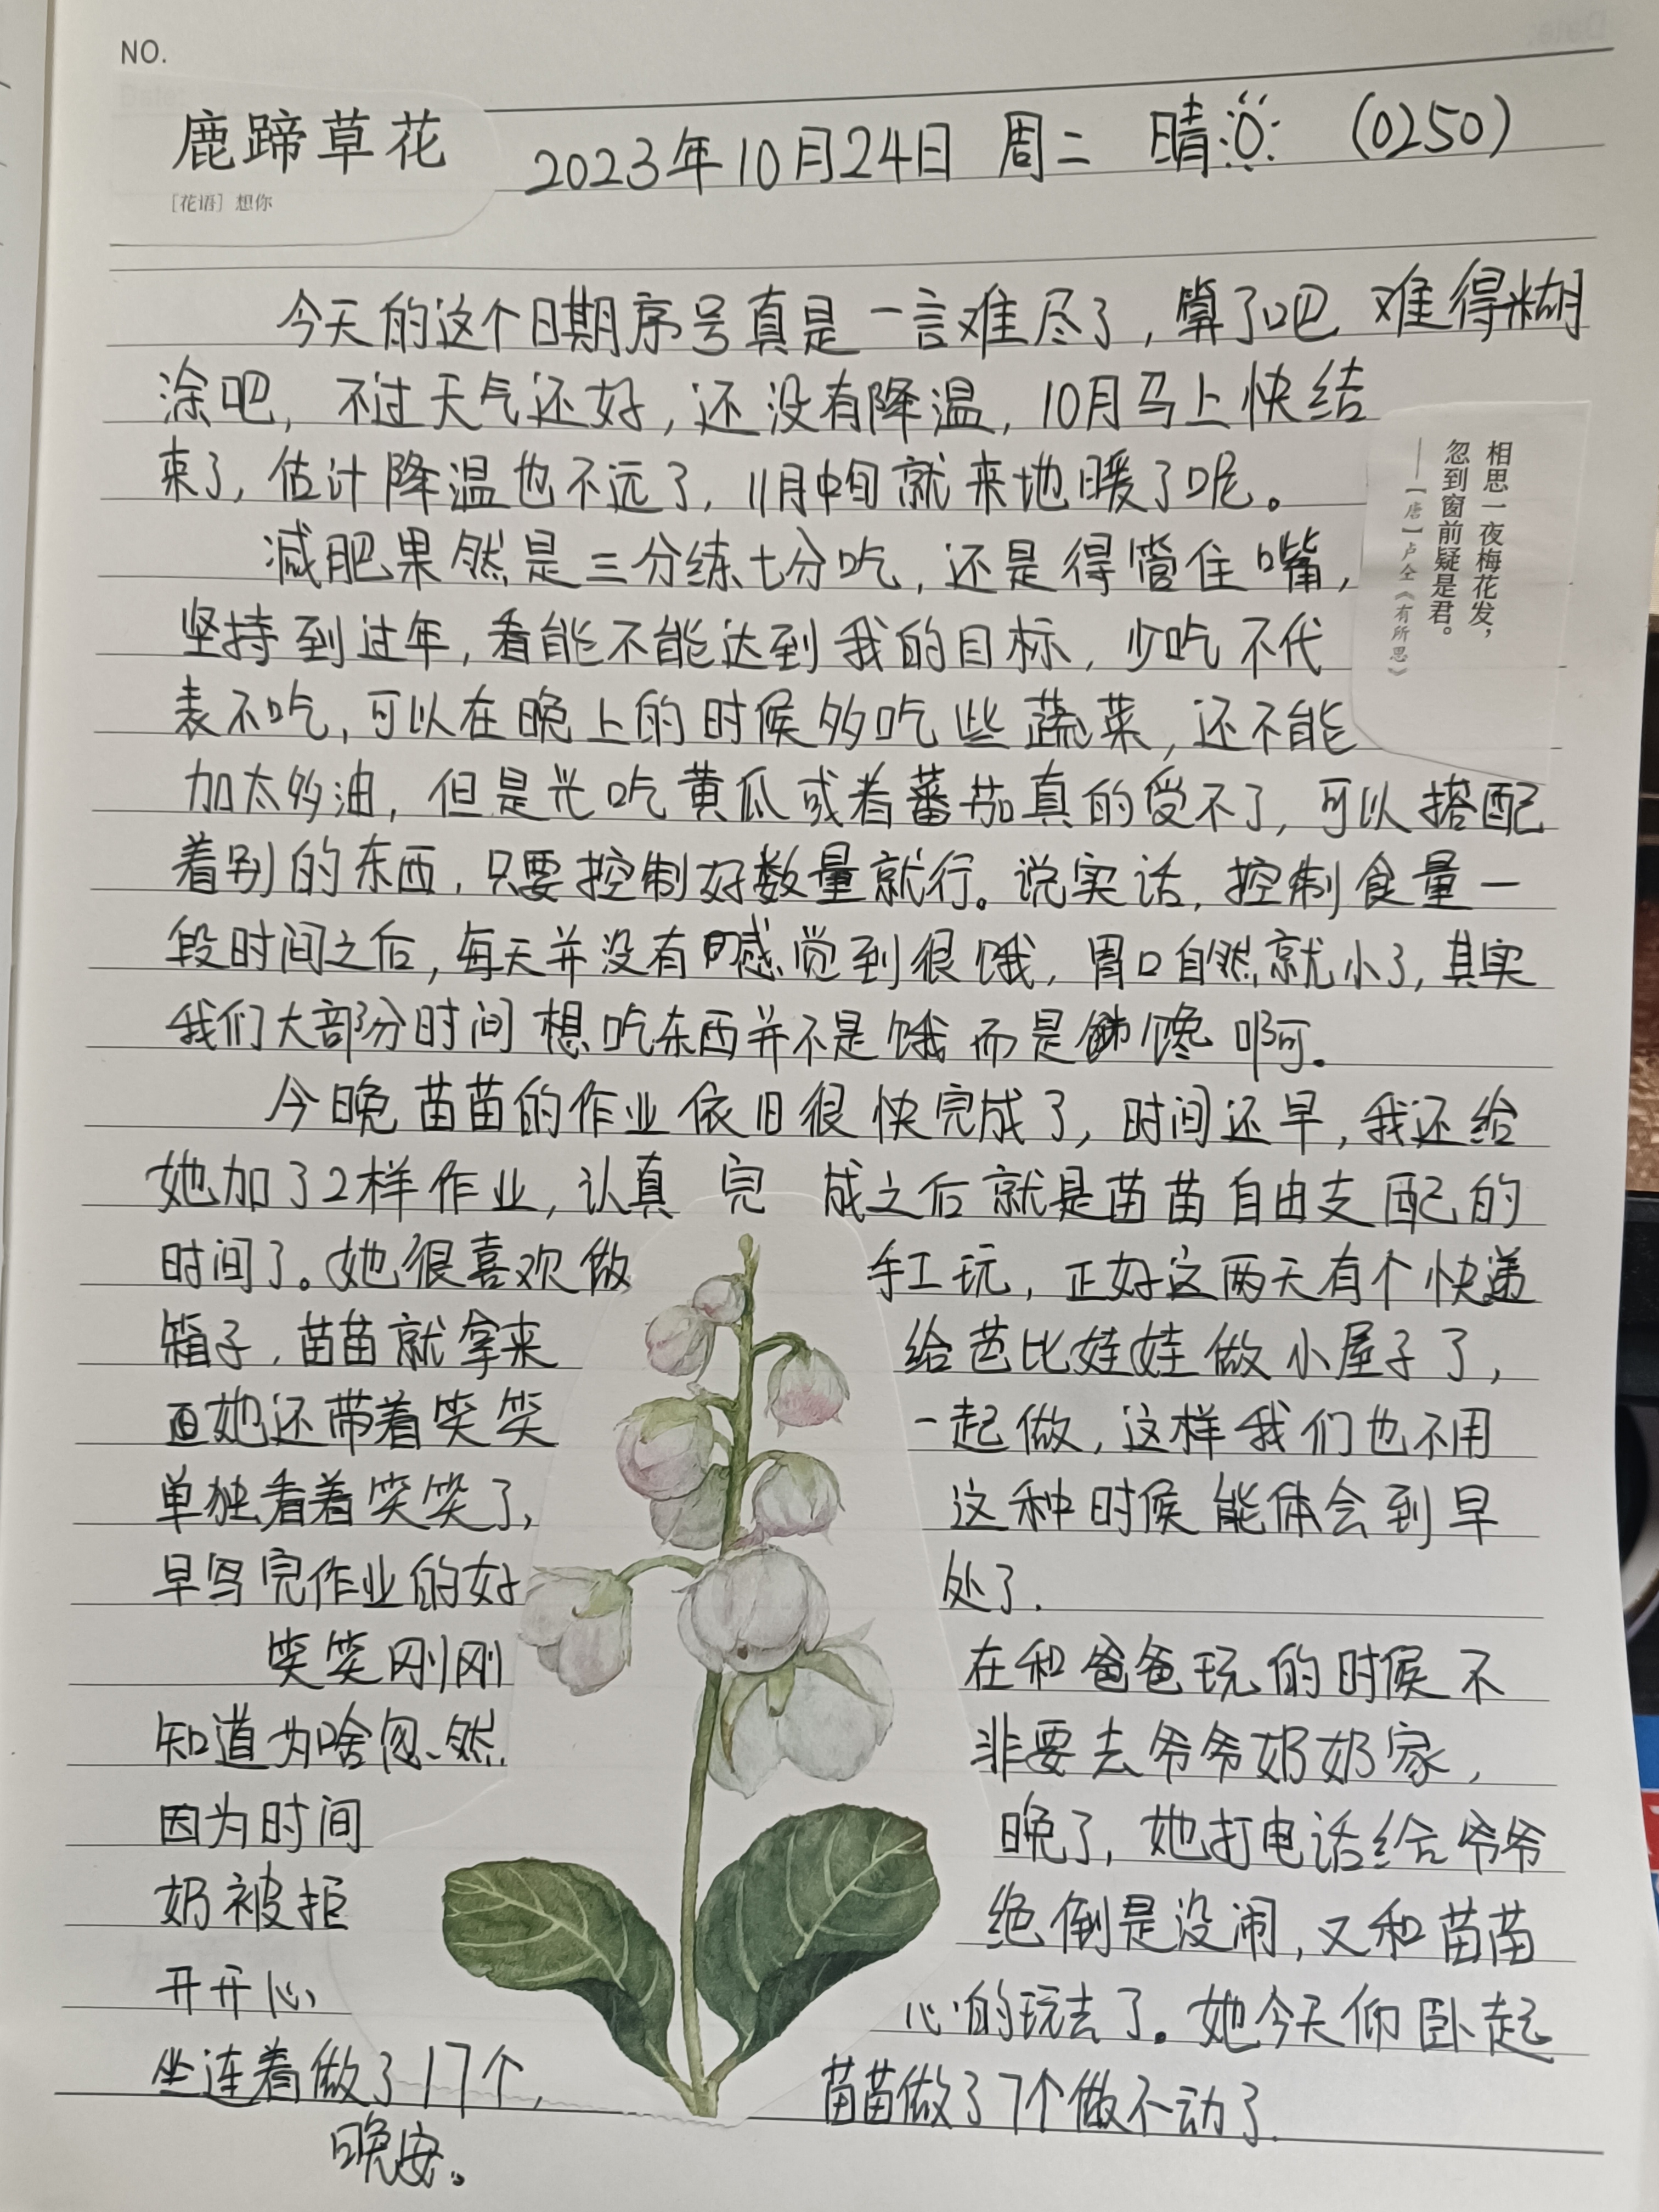 NO.
鹿蹄草花
[花语] 想你
2023年10月24日 周二 晴 (0250)
今天的这个日期序号真是一言难尽了,算了吧 难得糊
涂吧,不过天气还好,还没有降温,10月马上快结
束了,估计降温也不远了,11月中旬就来地暖了呢。
相思一夜梅花发,
忽到窗前疑是君。
——【唐】卢仝《有所思》
减肥果然是三分练七分吃,还是得管住嘴,
坚持到过年,看能不能达到我的目标,少吃不代
表不吃,可以在晚上的时候多吃些蔬菜,还不能
加太多油,但是光吃黄瓜或者蕃茄真的受不了,可以搭配
着别的东西,只要控制好数量就行。说实话,控制食量一
段时间之后,每天并没有感觉到很饿,胃口自然就小了,其实
我们大部分时间想吃东西并不是饿而是馋啊。
今晚苗苗的作业依旧很快完成了,时间还早,我还给
她加了2样作业,认真 完 成之后就是苗苗自由支配的
时间了。她很喜欢做 手工玩,正好这两天有个快递
箱子,苗苗就拿来 给芭比娃娃做小屋子了,
她还带着笑笑 一起做,这样我们也不用
单独看着笑笑了, 这种时候能体会到早
早写完作业的好 处了.
笑笑刚刚 在和爸爸玩的时候不
知道为啥忽然 非要去爷爷奶奶家,
因为时间 晚了,她打电话给爷爷
奶被拒 绝倒是没闹,又和苗苗
开开心 心的玩去了。她今天仰卧起
坐连着做了17个, 苗苗做了7个做不动了.
晚安。